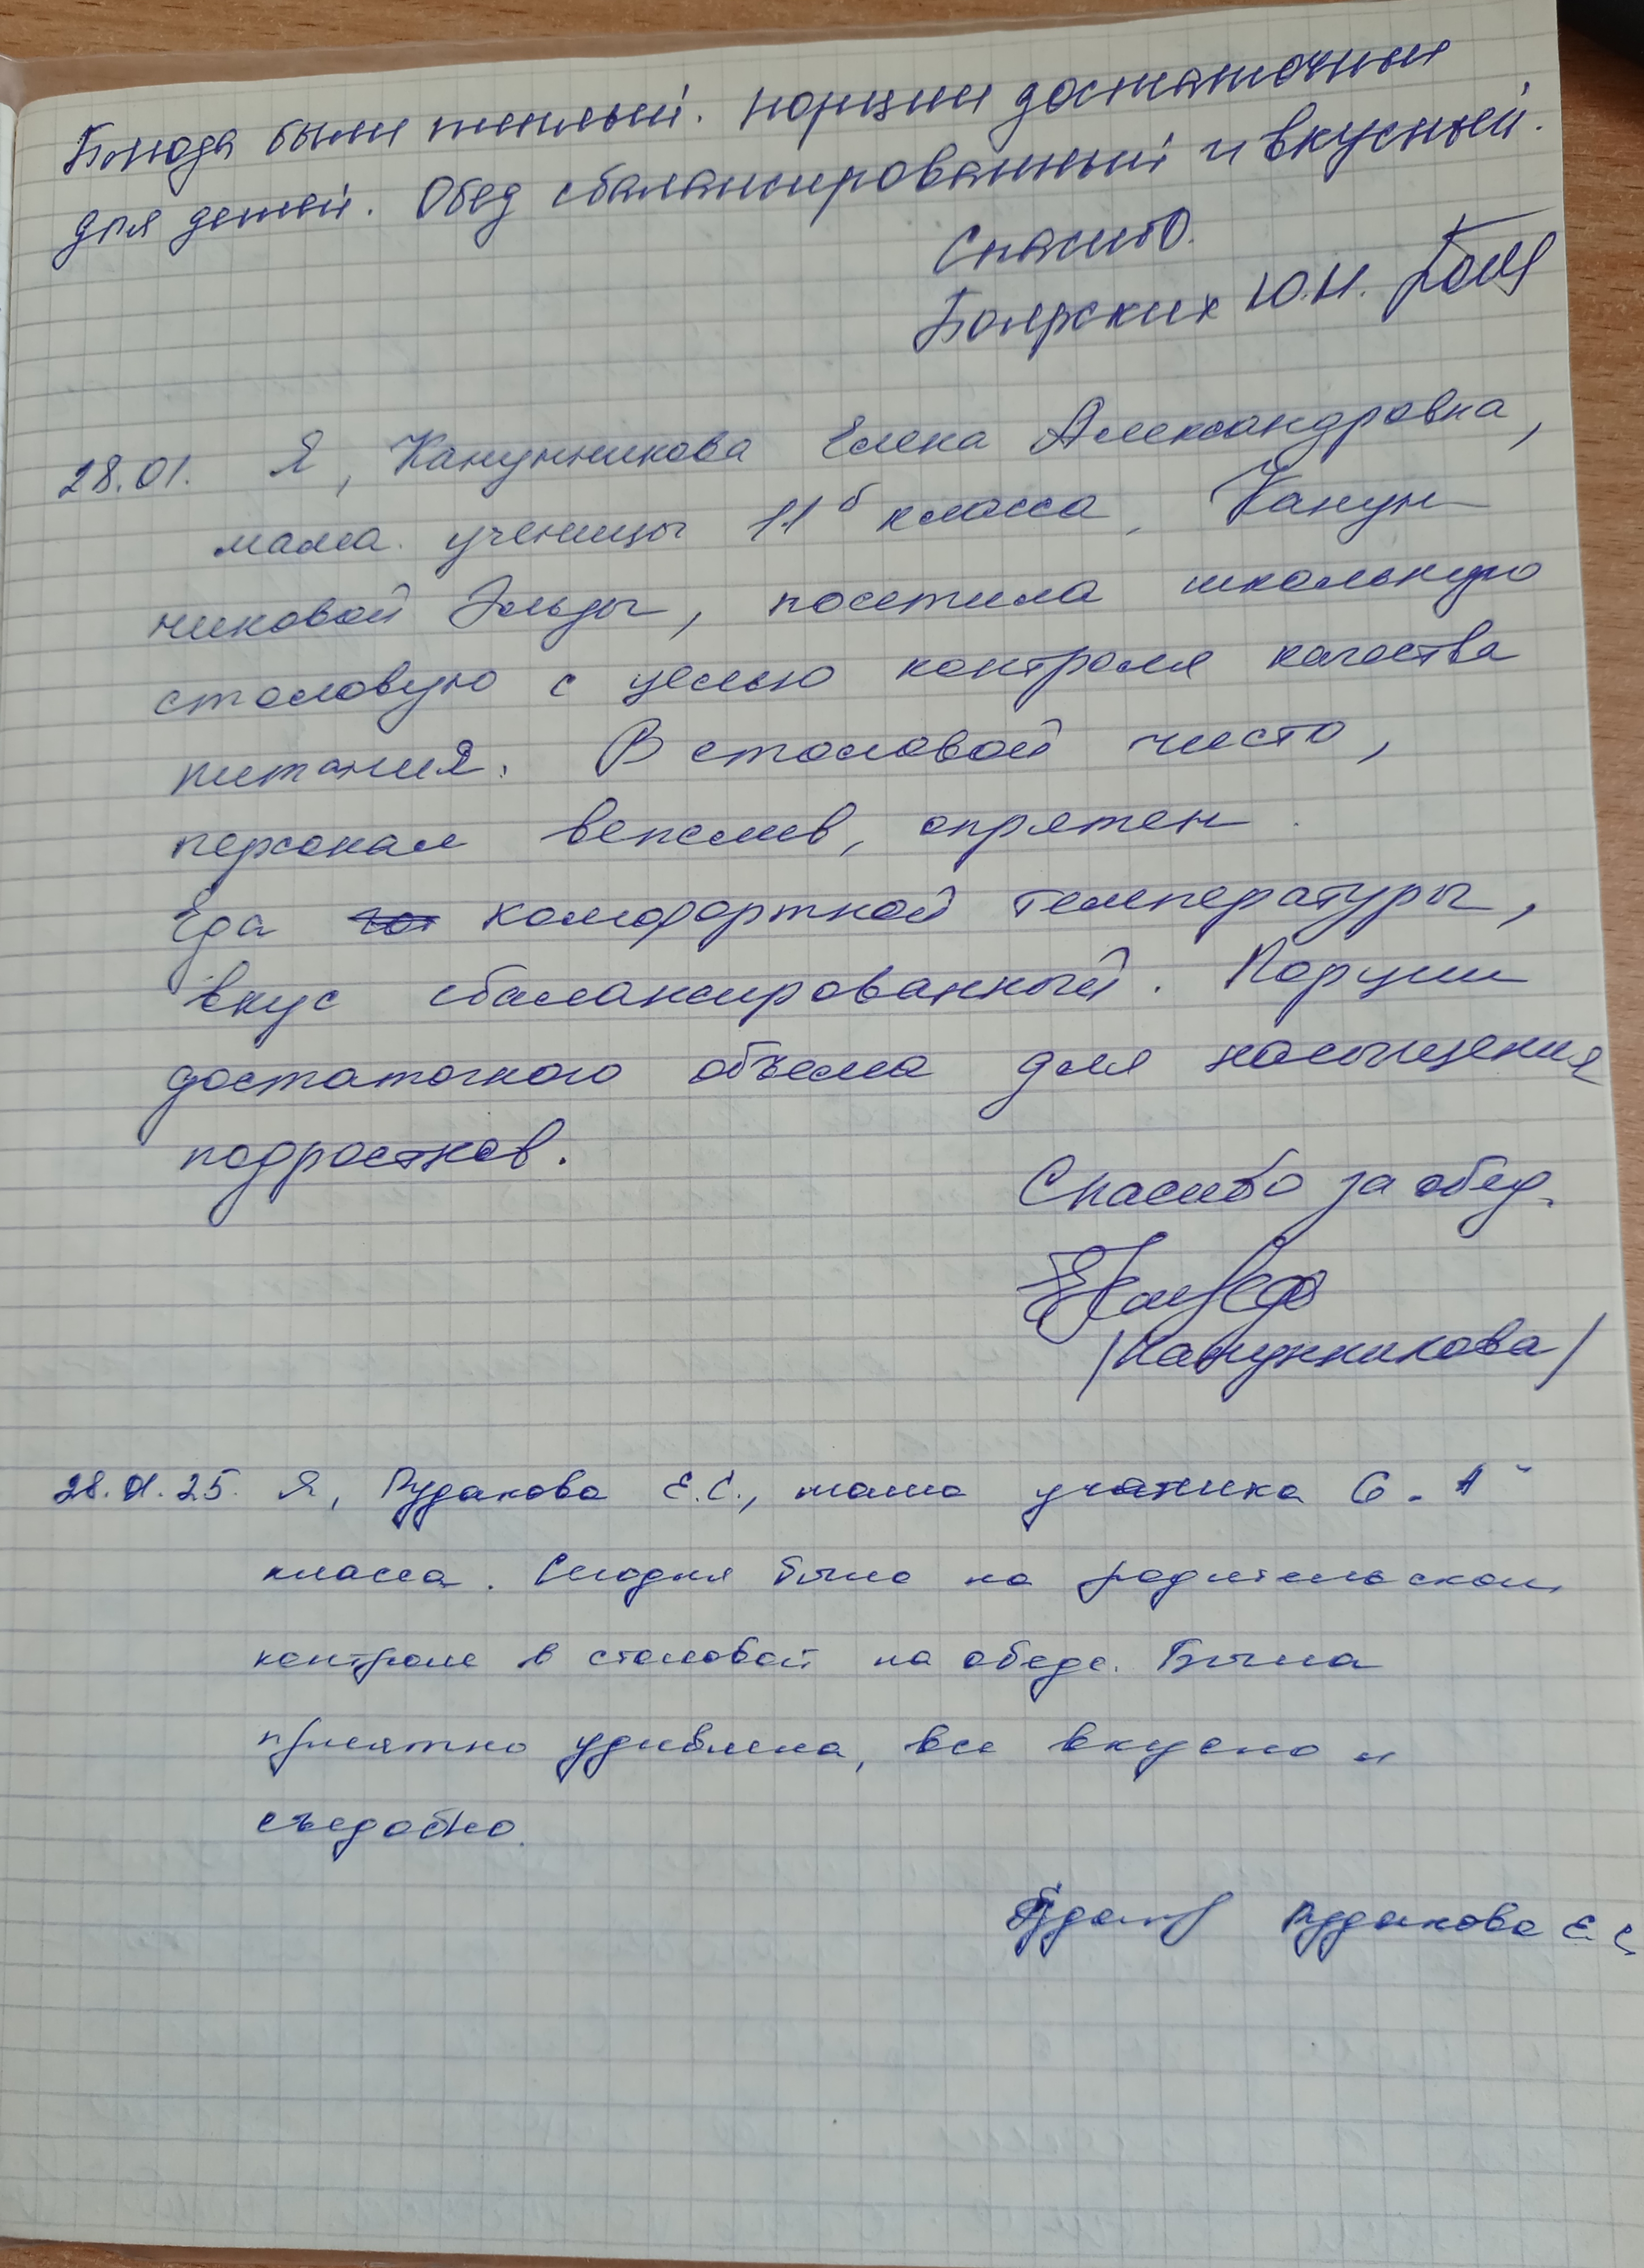 Блюда были теплый. порции достаточный
для детей. Обед сбалансированный и вкусный.
Спасибо.
Боярских Ю.Н.
28.01. Я, Канунникова Елена Александровна,
мама ученицы 11б класса, Канун-
никовой Эльды, посетила школьную
столовую с целью контроля качества
питания. В столовой чисто,
персонал вежлив, опрятен.
Еда комфортной температуры,
вкус сбалансированный. Порции
достаточного объема для насыщения
подростков.
Спасибо за обед.
/Канунникова/
28.01.25. Я, Рудакова Е.С., мама ученика 6
класса. Сегодня была на родительском
контроле в столовой на обеде. Была
приятно удивлена, все вкусно и
съедобно.
Рудакова Е.С